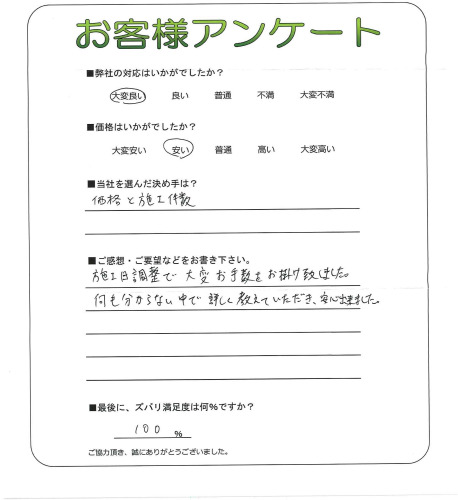 お客様アンケート
■弊社の対応はいかがでしたか？
大変良い 良い 普通 不満 大変不満
■価格はいかがでしたか？
大変安い 安い 普通 高い 大変高い
■当社を選んだ決め手は？
価格と施工件数
■ご感想・ご要望などをお書き下さい。
施工日調整で大変お手数をお掛け致しました。
何も分からない中で詳しく教えていただき、安心出来ました。
■最後に、ズバリ満足度は何%ですか？
100 %
ご協力頂き、誠にありがとうございました。